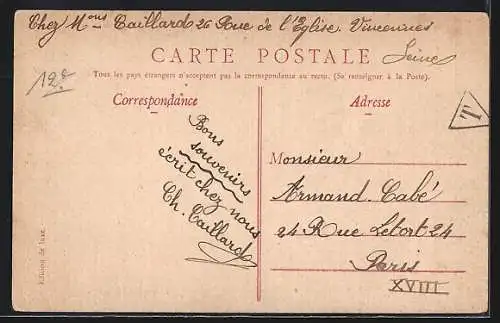 Chez Mons Caillard 26 Rue de l'Eglise. Vincennes
Seine
CARTE POSTALE
Tous les pays étrangers n'acceptent pas la correspondance au recto. (Se renseigner à la Poste).
12e
Correspondance
Adresse
T
Bons
souvenirs
écrit chez nous
Ch. Caillard
Monsieur
Armand. Cabé
24 Rue Letort 24
Paris
XVIII
Edition de luxe.